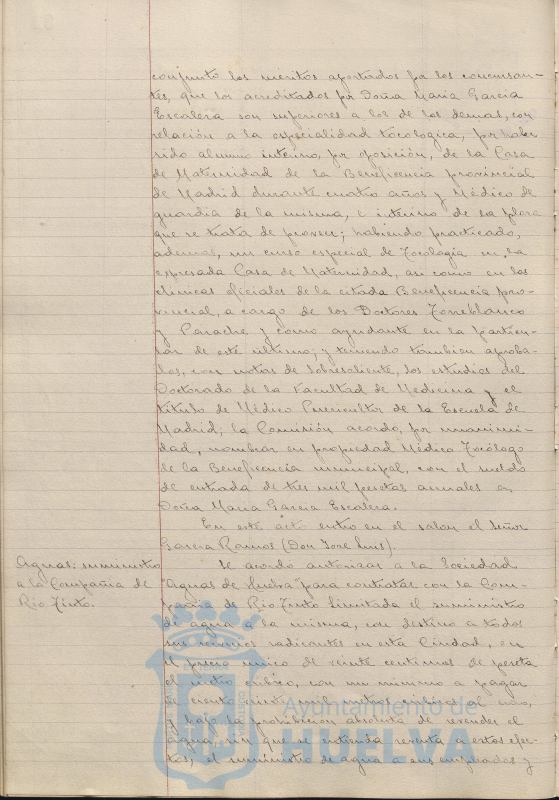 conjunto los méritos aportados por los concursan-
tes, que los acreditados por Doña María García
Escalera son superiores a los de los demas, con
relación a la especialidad tocológica, por haber
sido alumno interino, por oposición, de la Casa
de Maternidad de la Beneficencia provincial
de Madrid durante cuatro años y Médico de
guardia de la misma, e interino de la plaza
que se trata de proveer; habiendo practicado,
ademas, un curso especial de Tocología en la
expresada Casa de Maternidad, asi como en las
clínicas oficiales de la citada Beneficencia pro-
vincial, a cargo de los Doctores Torreblanco
y Parache y como ayudante en la particu-
lar de este ultimo; y teniendo tambien aproba-
dos, con notas de sobresaliente, los estudios del
Doctorado de la Facultad de Medicina y el
título de Médico Puericultor de la Escuela de
Madrid; la Comisión acordo, por unanimi-
dad, nombrar en propiedad Médico Tocólogo
de la Beneficencia municipal, con el sueldo
de entrada de tres mil pesetas anuales a
Doña María García Escalera.
En este acto entro en el salon el Señor
García Ramos (Don José Luis).
Aguas: suministro
a la Compañía de
Rio Tinto.
Se acordo autorizar a la Sociedad
"Aguas de Huelva" para contratar con la Com-
pañía de Rio Tinto Limitada el suministro
de agua a la misma, con destino a todos
sus recintos radicantes en esta Ciudad, en
el precio unico de veinte centimos de peseta
el metro cúbico, con un minimo a pagar
de ciento mil metros cúbicos al año,
y bajo la prohibicion absoluta de revender el
agua, sin que se entienda reventa a estos efec-
tos, el suministro de agua a sus empleados y
Ayuntamiento de
HUELVA